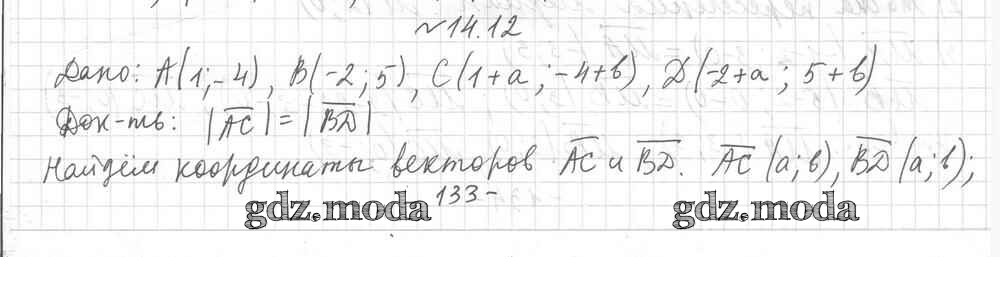 №14.12
Дано: A(1;-4), B(-2;5), C(1+a;-4+b), D(-2+a; 5+b)
Док-ть: |AC| = |BD|
Найдём координаты векторов AC и BD. AC (a;b), BD (a;b);
133-
gdz.moda gdz.moda